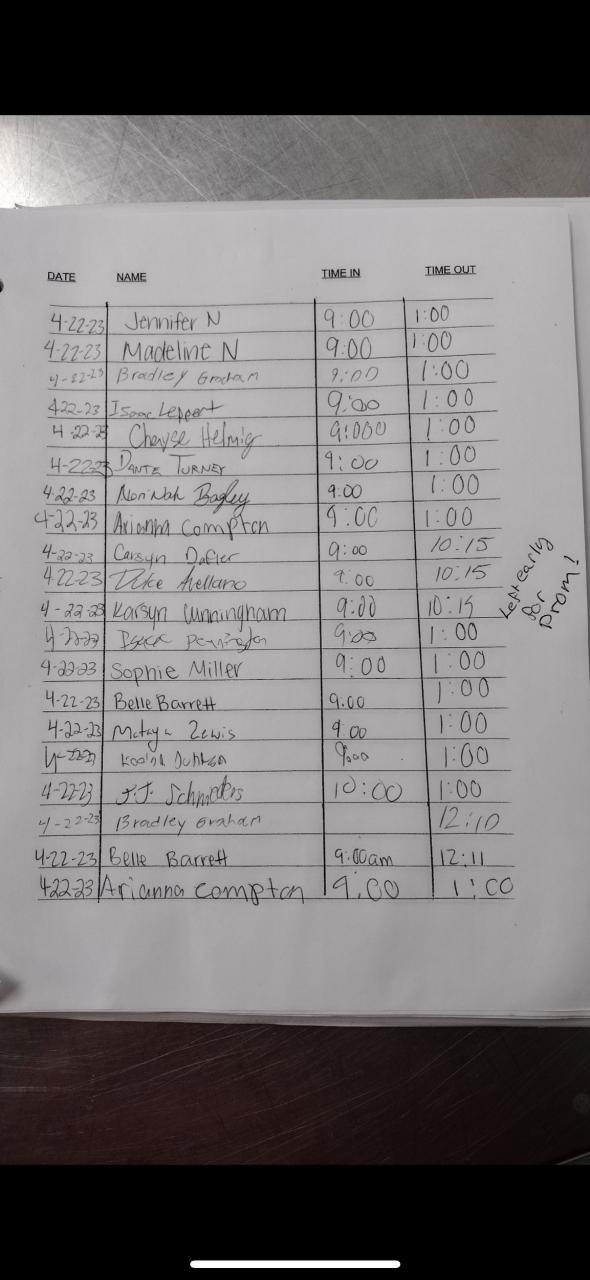 DATE NAME TIME IN TIME OUT
4-22-23 Jennifer N 9:00 1:00
4-22-23 Madeline N 9:00 1:00
4-22-23 Bradley Graham 9:00 1:00
422-23 Isaac Leppert 9:00 1:00
4-22-23 Chayse Helmig 9:000 1:00
4-22-23 DANTE TURNEY 9:00 1:00
4-22-23 Bagley 9:00 1:00
4-22-23 Arianna Compton 9:00 1:00
4-22-23 Carsyn 9:00 10:15
4-22-23 Avellano 9:00 10:15
4-22-23 Karsyn Cunningham 9:00 10:15
Left early
for
Prom!
9:00 1:00
4-22-23 Sophie Miller 9:00 1:00
4-22-23 Belle Barrett 9:00 1:00
4-22-23 Lewis 9:00 1:00
9:00 1:00
4-22-23 J.J. 10:00 1:00
4-22-23 Bradley Graham 12:10
4-22-23 Belle Barrett 9:00am 12:11
422-23 Arianna Compton 9:00 1:00